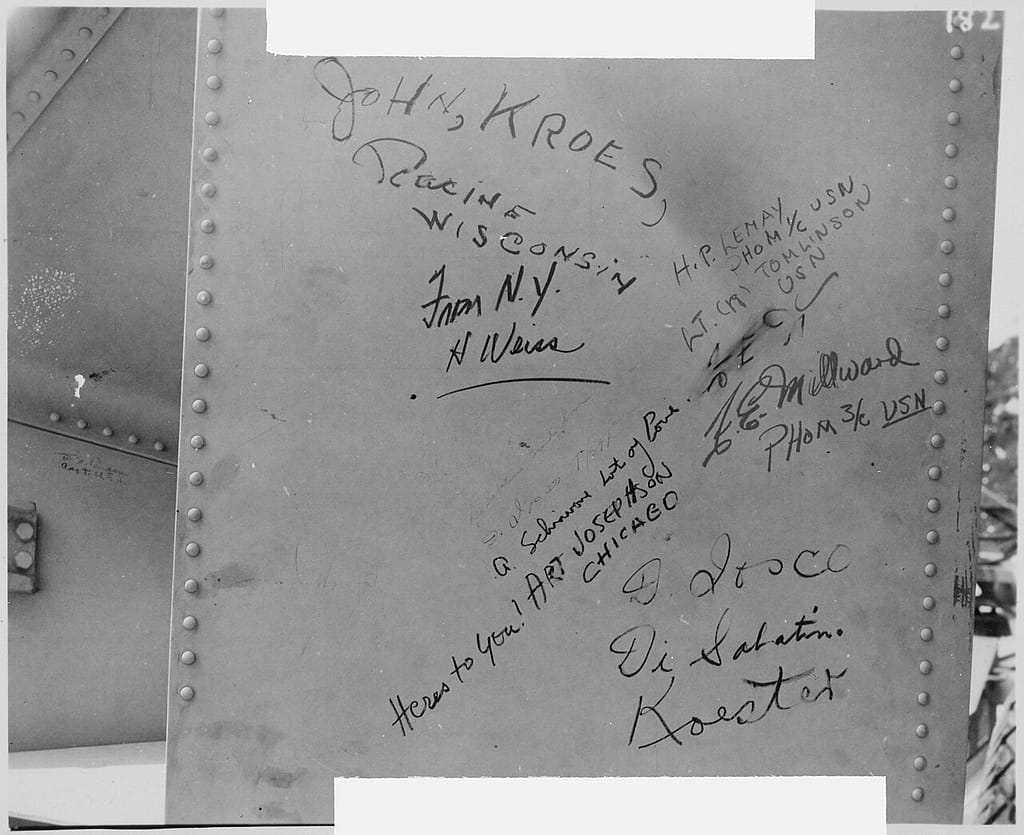 182
JOHN, KROES,
Racine
WISCONSIN
From N.Y.
H Weiss
H. P. LEMAY
PHOM 1/c USN
LT. (jg) TOMLINSON
USN
E. Millward
PHOM 3/c USN
a Schinwone Lot of
Heres to you! ART JOSEPHSON
CHICAGO
D.
Di Sabatin.
Koester